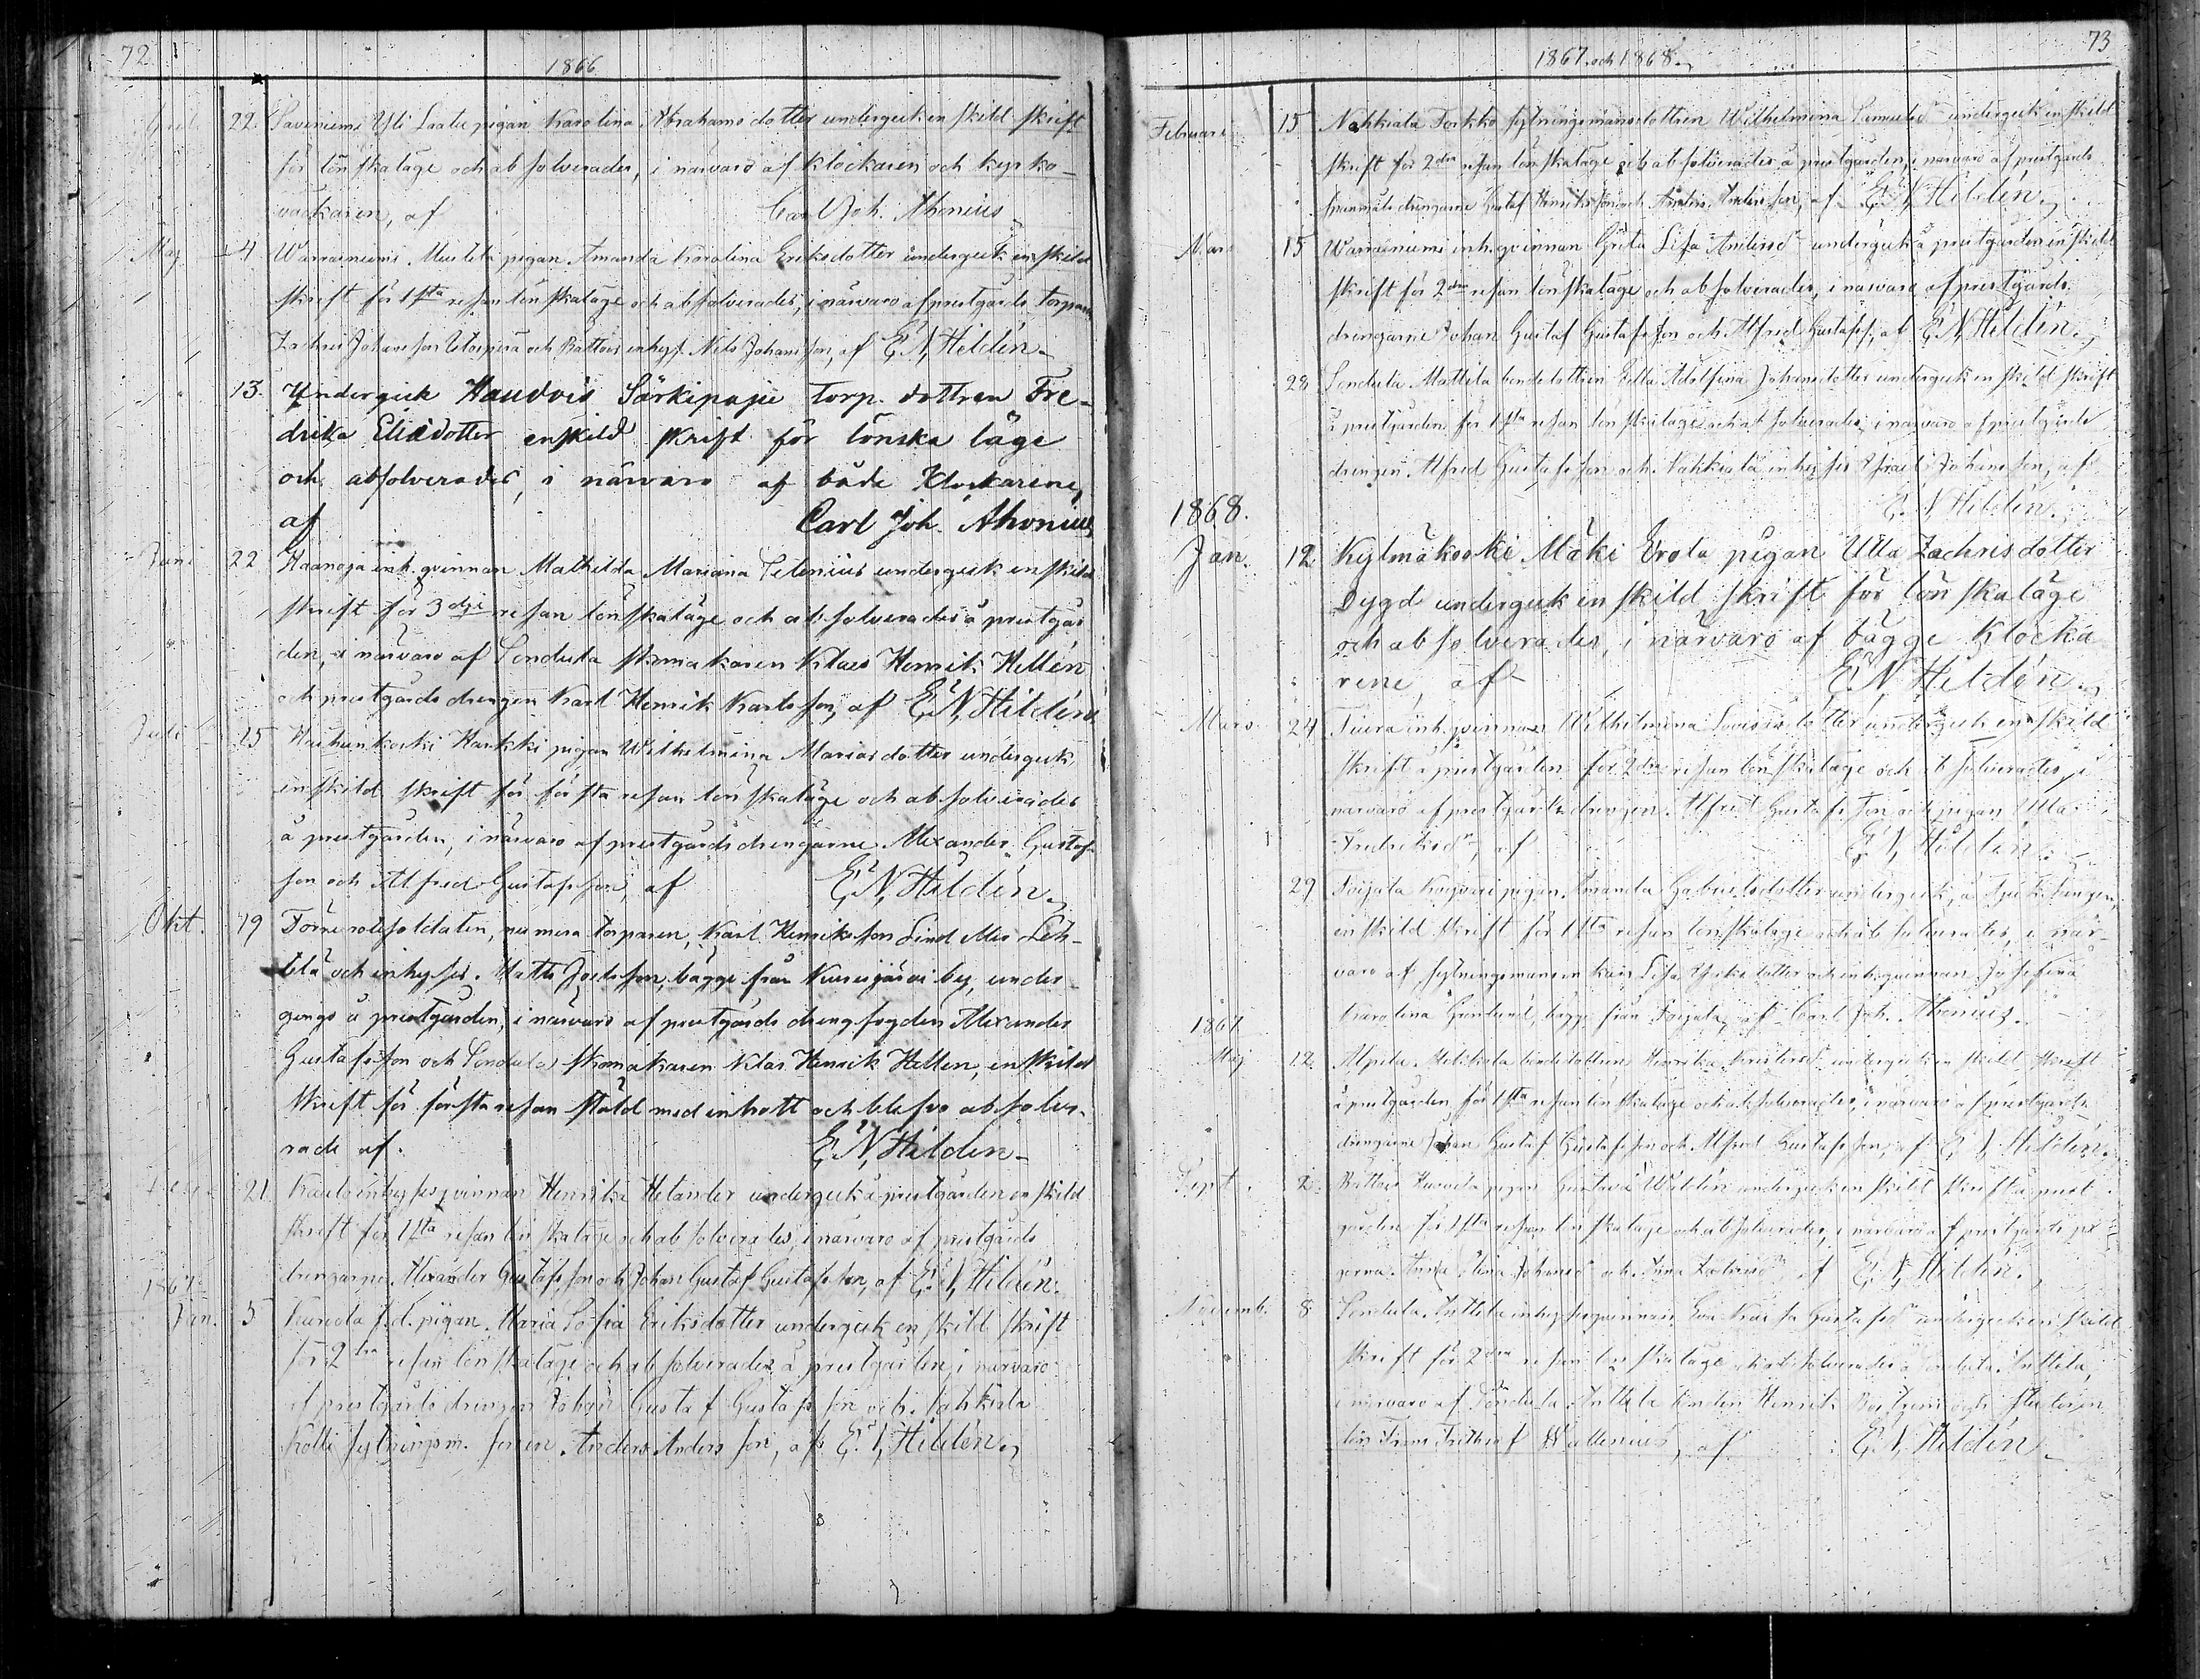 72
1866
April 22. Saviniemi Yli Laalu pigan Karolina Abrahamsdotter undergick enskild skrift
för lönskaläge och absolverades, i närvaro af klockaren och kyrko-
väktaren, af Carl Joh. Ahonius
Maj 4 Warrasniemi Mustila pigan Amanda Karolina Eriksdotter undergick enskild
skrift för 1sta resan lönskaläge och absolverades, i närvaro af prestgårds torparen
Zachris Johansson och Rattois inhys. Nils Johansson, af E. N. Heldén
13. Undergick Haudois Särkipaju torp. dottren Fre-
drika Eliædotter enskild skrift för lönska läge
och absolverades, i närvaro af både Klockarene,
af Carl Joh. Ahonius
Juni 22 Haanoja inh. qvinnan Mathilda Mariana Selenius undergick enskild
skrift för 3dje resan lönskaläge och absolverades å prestgår
den, i närvaro af Sondula skomakaren Klaes Henrik Hellén
och prestgårds drengen Karl Henrik Karlsson, af E. N. Hildén
Juli 15 Hauhunkoski Harkki pigan Wilhelmina Mariasdotter undergick
enskild skrift för första resan lönskaläge och absolverades
å prestgården, i närvaro af prestgårds drengarne Alexander Gustaf-
son och Alfred Gustafsson, af E. N. Hildén
Okt. 19 Törne rotesoldaten, numera torparen, Karl Henriksson Lind Alis Leh-
telä och inhyses. Matts Joelsson, bägge från Kurisjärvi by, under-
gingo å prestgården, i närvaro af prestgårds drengfogden Alexander
Gustafsson och Sondula skomakaren Klas Henrik Hellen, enskild
skrift för första resan stöld med inbrott och blefvo absolve-
rade af. E. N. Hildén
21. inhysesqvinnan Henrika Helander undergick å prestgården enskild
skrift för 1sta resan lönskaläge och absolverades, i närvaro af prestgårds
drengarne Alexander Gustafsson och Johan Gustaf Gustafsson, af E. N. Hildén.
1867
Jan. 5 pigan Maria Sofia Eriksdotter undergick enskild skrift
för 2dra resan lönskaläge och absolverades å prestgården, i närvaro
af prestgårds drengen Johan Gustaf Gustafsson och Nahkiala
Kolli sytningsm. sonen Anders Andersson, af E. N. Hildén
73
1867 och 1868.
Februari 15 Nahkiala Torkko sytningsmansdottren Wilhelmina undergick enskild
skrift för 2dra resan lönskaläge och absolverades å prestgården, i närvaro af prestgårds
drengarne Gustaf Henriksson och Anders Andersson, af E. N. Hildén
Mars 15 Warrasniemi inh. qvinnan Greta Lisa Andersd:r undergick å prestgården enskild
skrift för 2dra resan lönskaläge och absolverades, i närvaro af prestgårds
drengarne Johan Gustaf Gustafsson och Alfred Gustafss, af E. N. Hildén.
28 Sondula Mattila bondedottren Edla Adolfina Johansdotter undergick enskild skrift
å prestgården för 1sta resan lönskaläge och absolverades, i närvaro af prestgårds
drengen Alfred Gustafsson och Nahkiala inhyses Israel Johansson, af
E. N. Hildén.
1868.
Jan. 12 Kylmäkoski Mäki Erola pigan Ulla Zachrisdotter
Dygd undergick enskild skrift för lönskaläge
och absolverades, i närvaro af bägge Klocka
rene, af E. N. Hildén
Mars 24 inh. qvinnan Wilhelmina Lovisasdotter undergick enskild
skrift å prestgården för 2dra resan lönskaläge och absolverades, i
närvaro af prestgårds drengen Alfred Gustafsson och pigan Ulla
Fredriksd:r, af E. N. Hildén
29 Toijala pigan Amanda Gabrielsdotter undergick, å
enskild skrift för 1sta resan lönskaläge och absolverades, i när-
varo af sytningsmannen Lisa och inh. qvinnan Josefina
Karolina Grönlund, bägge från Toijala, af Carl Joh. Ahonius.
1867
Maj 12. bondedottren Henrika undergick enskild skrift
å prestgården för 1sta resan lönskaläge och absolverades, i närvaro af prestgårds
drengarne Johan Gustaf Gustafsson och Alfred Gustafsson, af E. N. Hildén.
Sept. 2. Rattois pigan Gustava undergick enskild skrift å prest
gården för 1sta resan lönskaläge och absolverades, i närvaro af prestgårds pi
gorna Stina Johansd:r och, af E. N. Hildén.
Novemb. 8. Sondula Anttila inhysesqvinnan Eva Gustafsd:r undergick enskild
skrift för 2dra resan lönskaläge och absolverades å Sondula Anttila,
i närvaro af Sondula Anttila bonden Henrik och studeran
den Frans Frithiof Wallenius, af E. N. Hildén